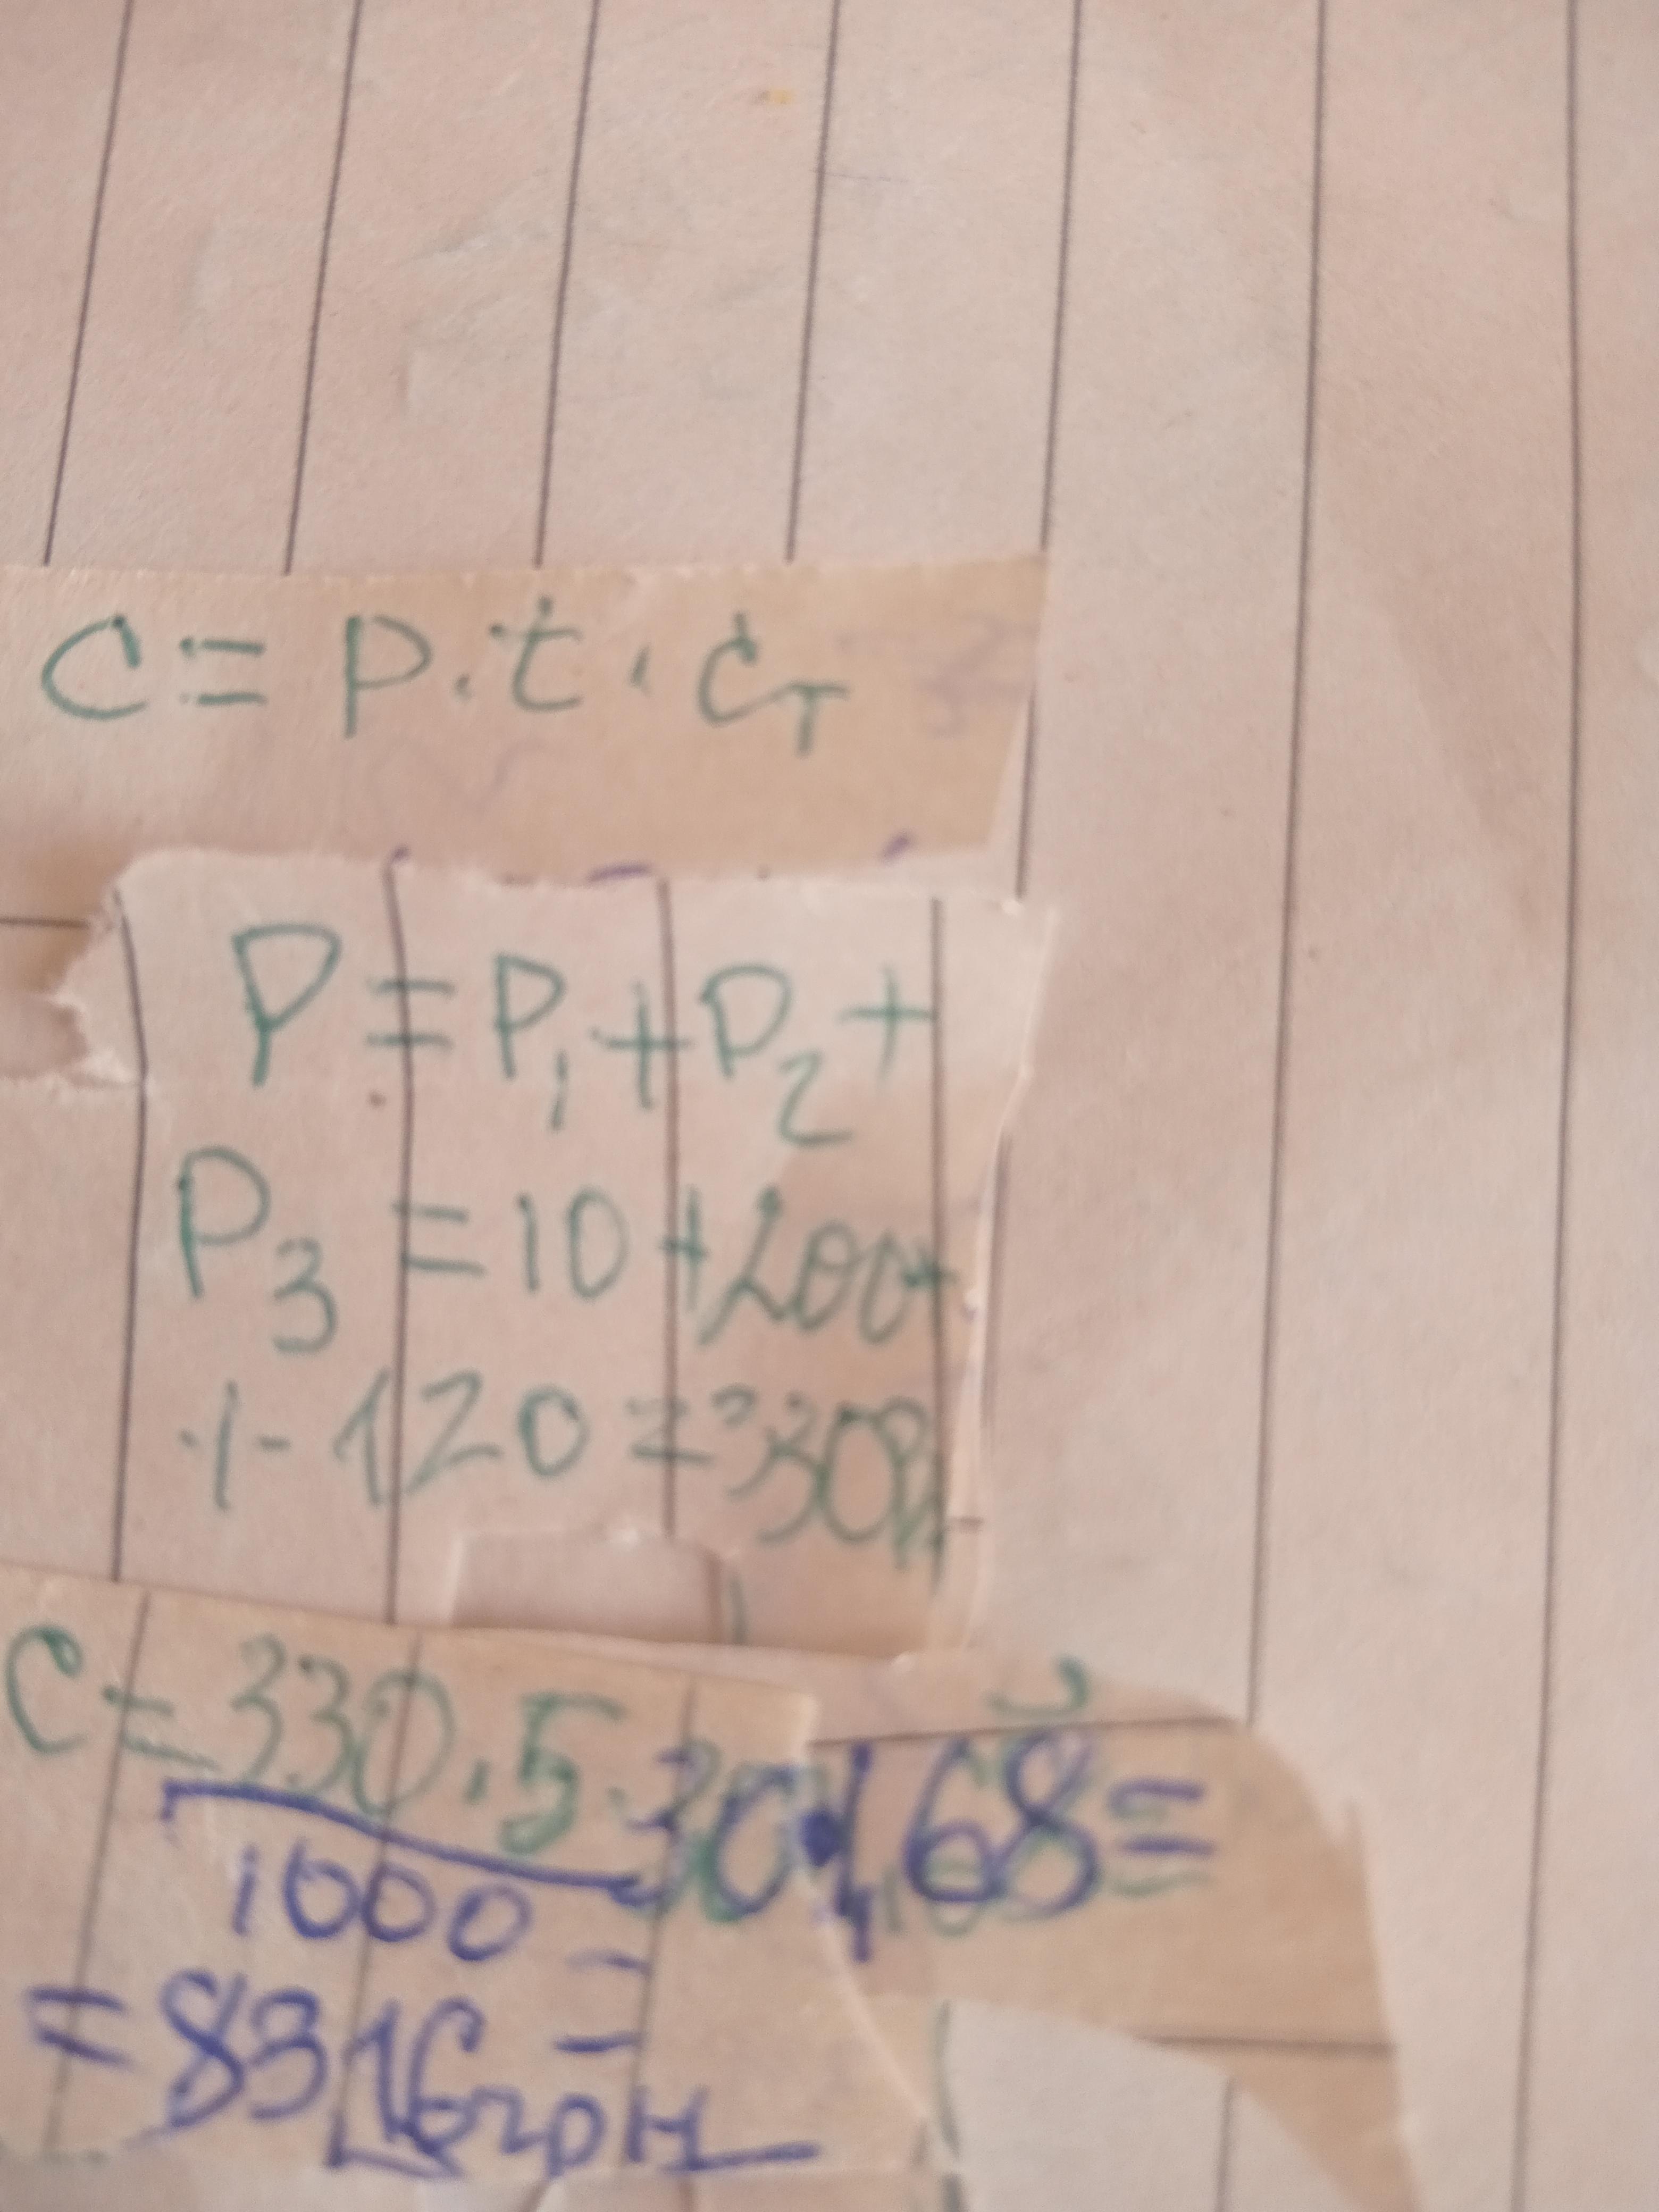 C = P · t · Cт
P = P1 + P2 +
P3 = 10 + 200 +
+ 120 = 330
C = 330 · 5 · 30 · 1,68 =
1000
= 83,16 грн